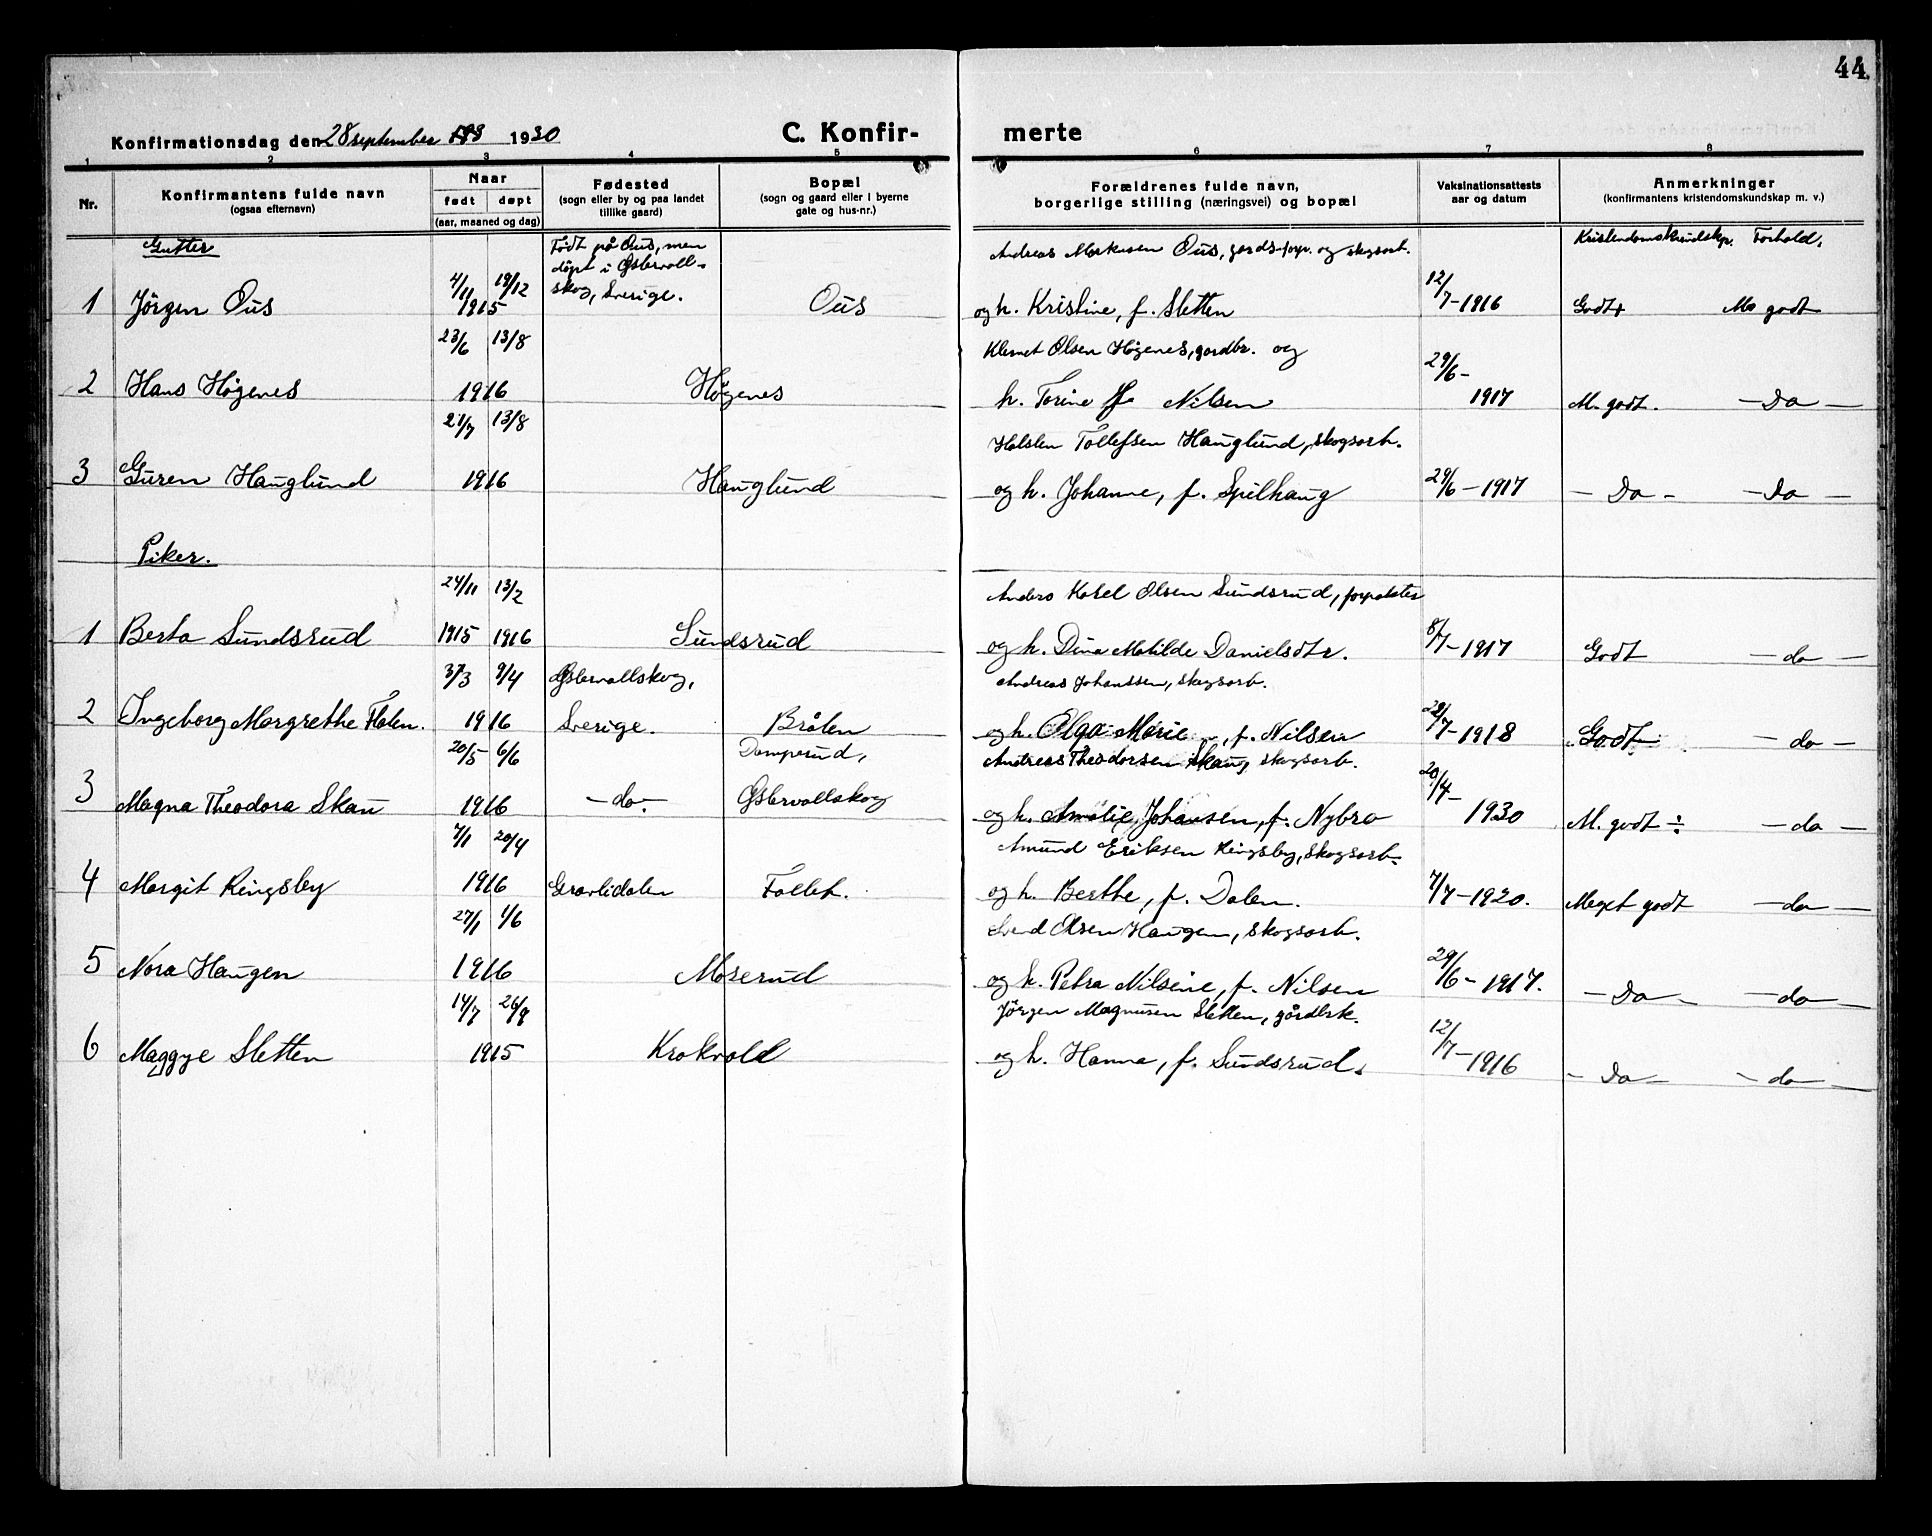 44.
Konfirmationsdag den 28 september 1930
C. Konfir-merte
1 2 3 4 5 6 7 8
Nr.
Konfirmantens fulde navn
(ogsaa efternavn)
Naar
født døpt
(aar, maaned og dag)
Fødested
(sogn eller by og paa landet
tillike gaard)
Bopæl
(sogn og gaard eller i byerne
gate og hus-nr.)
Forældrenes fulde navn,
borgerlige stilling (næringsvei) og bopæl
Vaksinationsattests
aar og datum
Anmerkninger
(konfirmantens kristendomskundskap m. v.)
Gutter
Født på Ous, men
døpt i Østervall-
skog, Sverige.
Kristendomskundskp. Forhold.
Andreas Markusen Ous, gårds-forp. og skogsarb.
1 Jörgen Ous 4/11 19/12 1915 Ous og h. Kristine, f. Sletten 12/7-1916 Godt+ M. godt
23/6 13/8 Klemet Olsen Högenes, gardbr. og
2 Hans Högenes 1916 Högenes h. Torine f. Nilsen 29/6-1917 M. godt. -Da-
27/7 13/8 Halsten Tollefsen Hauglund, skogsarb.
3 Guren Hauglund 1916 Hauglund og h. Johanne, f. Spilhaug 29/6-1917 -Da- -Da-
Piker.
24/11 13/2 Anders Karel Olsen Sundsrud, forpakter
1 Berta Sundsrud 1915 1916 Sundsrud og h. Dina Matilde Danielsdtr. 8/7-1917 Godt -do-
3/3 9/4 Østervallskog, Andreas Johanssen, skogsarb.
2 Ingeborg Margrethe Flaten. 1916 Sverige. Bråten og h. Olga Marie, f. Nilsen 22/7-1918 Godt -do-
20/5 6/6 Damperud, Andreas Theodorsen Skau, skogsarb.
3 Magna Theodora Skau 1916 -do- Østervallskog og h. Amalie Johansen, f. Nybro 20/4-1930 M. godt ÷ -do-
7/1 20/4 Amund Eriksen Ringsby, skogsarb.
4 Margit Ringsby 1916 Gravlidalen Fallet. og h. Berthe, f. Dalen. 7/7-1920. Meget godt -do-
27/1 1/6 Svend Olsen Haugen, skogsarb.
5 Nora Haugen 1916 Moserud og h. Petra Nilsine, f. Nilsen 29/6-1917. -Da- -do-
14/7 26/9 Jörgen Magnusen Sletten, gårdbrk.
6 Maggye Sletten 1915 Krokvold og h. Hanna, f. Sundsrud. 12/7-1916 -Da- -do-